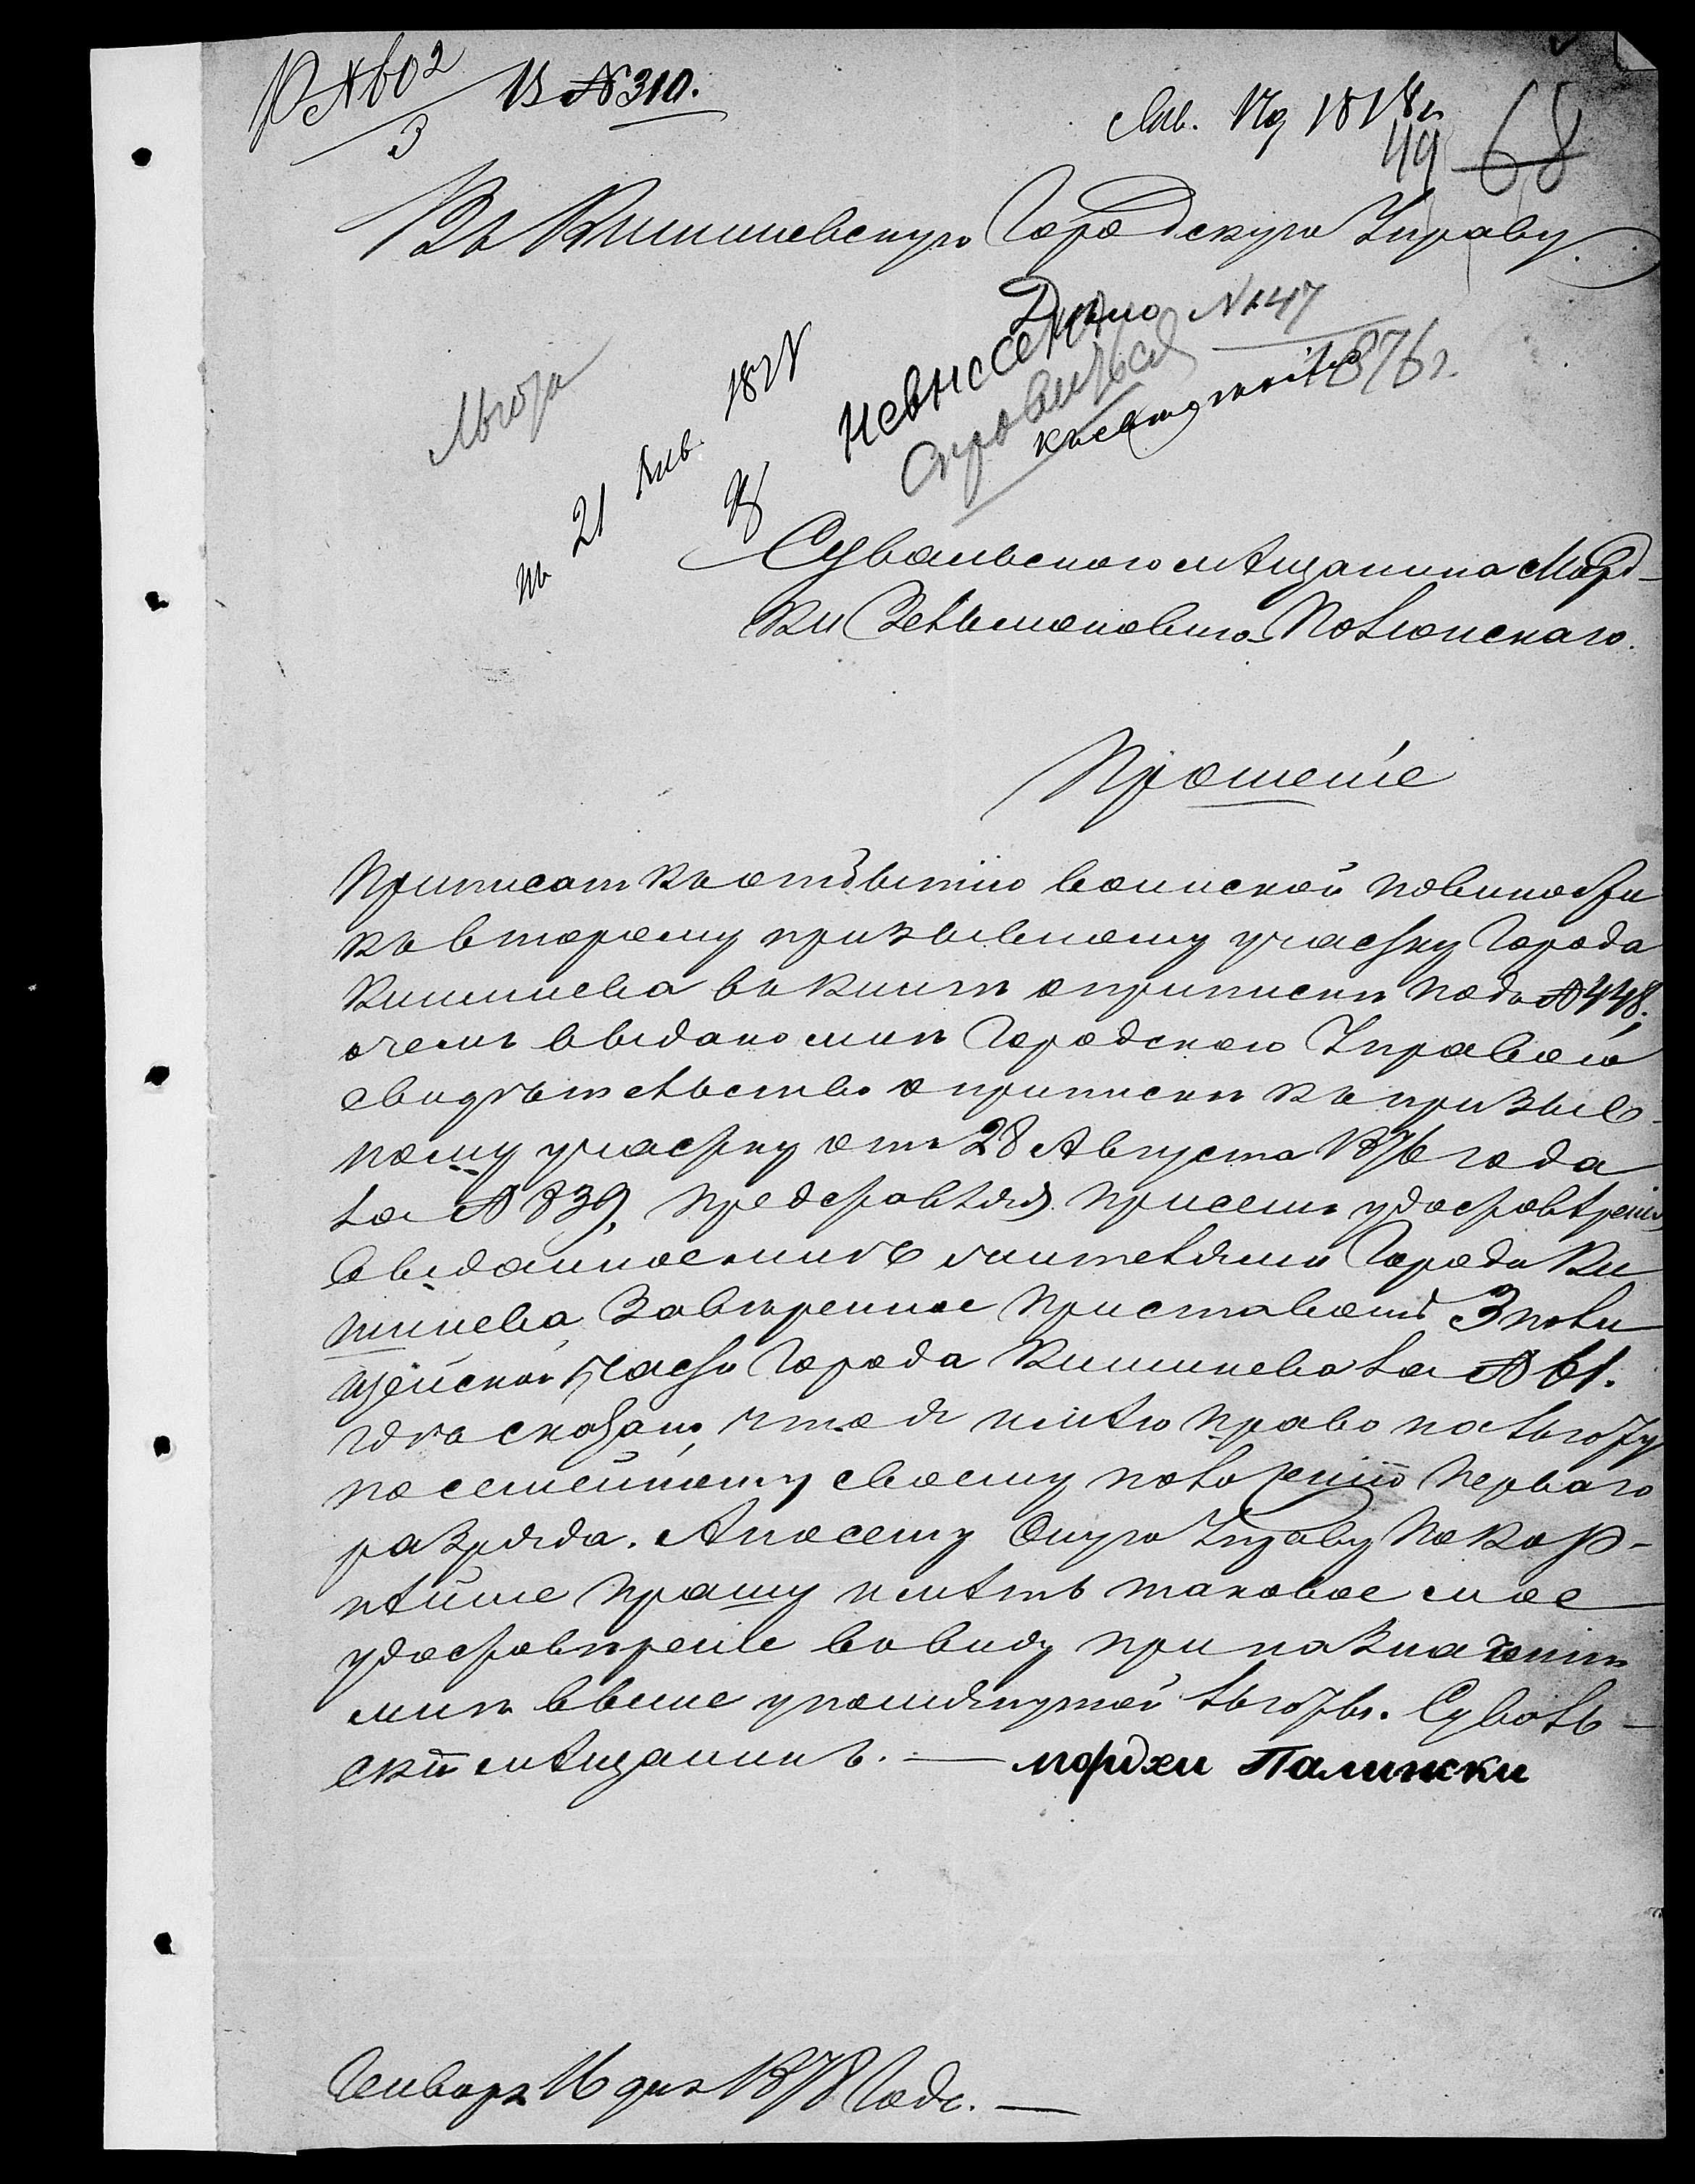 В № 310.
Янв. 17 д 1878 г.
49 68
Въ Кишиневскую Городскую Управу.
Дѣло № 147
1876 г.
Льгота
21 Янв. 1878
невнесенъ
справиться
Сувальскаго мѣщанина Морд-
ки Зельмановича Полонскаго.
Прошеніе
Приписан къ отбытію воинской повиности
къ второму призывному участку Города
Кишинева въ книгѣ о приписки подъ № 448.,
очемъ выдано мнѣ Городскою Управою
свидѣтельство о приписки къ призыв-
ному участку отъ 28 Августа 1876 года
за № 839, представляя присемъ удостовѣреніе
выданное мнѣ жителями Города Ки
шинева, Завѣренное приставомъ 3 поли
цейской части Города Кишинева за № 61.
гдѣ сказано, что я имѣю право на льготу
по семейному своему положенію перваго
разряда. А посему оную Управу Покор-
нѣйше прошу имѣть таковое мое
удостовѣреніе ввиду при назначеніи
мнѣ выше упомянутой льготы. Суваль-
скій мѣщанинъ. — мордхи Палински
Генваря 16 дня 1878 Года. —